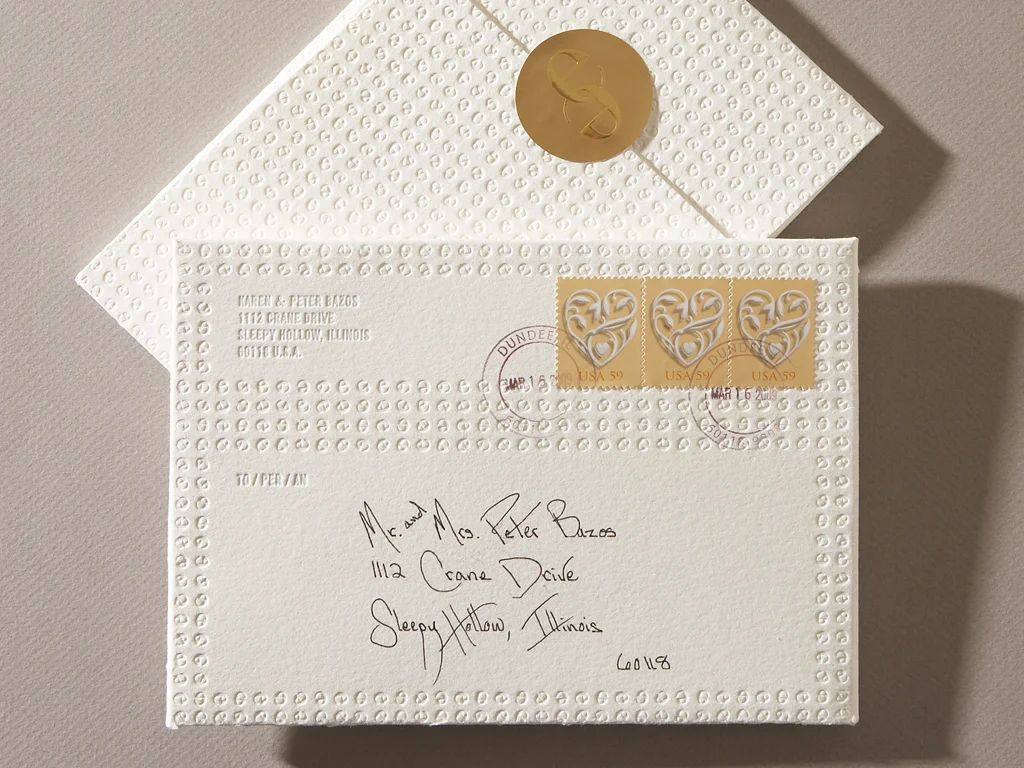 KAREN & PETER BAZOS
1112 CRANE DRIVE
SLEEPY HOLLOW, ILLINOIS
60118 U.S.A.
USA 59
USA 59
USA 59
DUNDEE
MAR 16 2009
DUNDEE
MAR 16 2009
TO / PER / AN
Mr. and Mrs. Peter Bazos
1112 Crane Drive
Sleepy Hollow, Illinois
60118